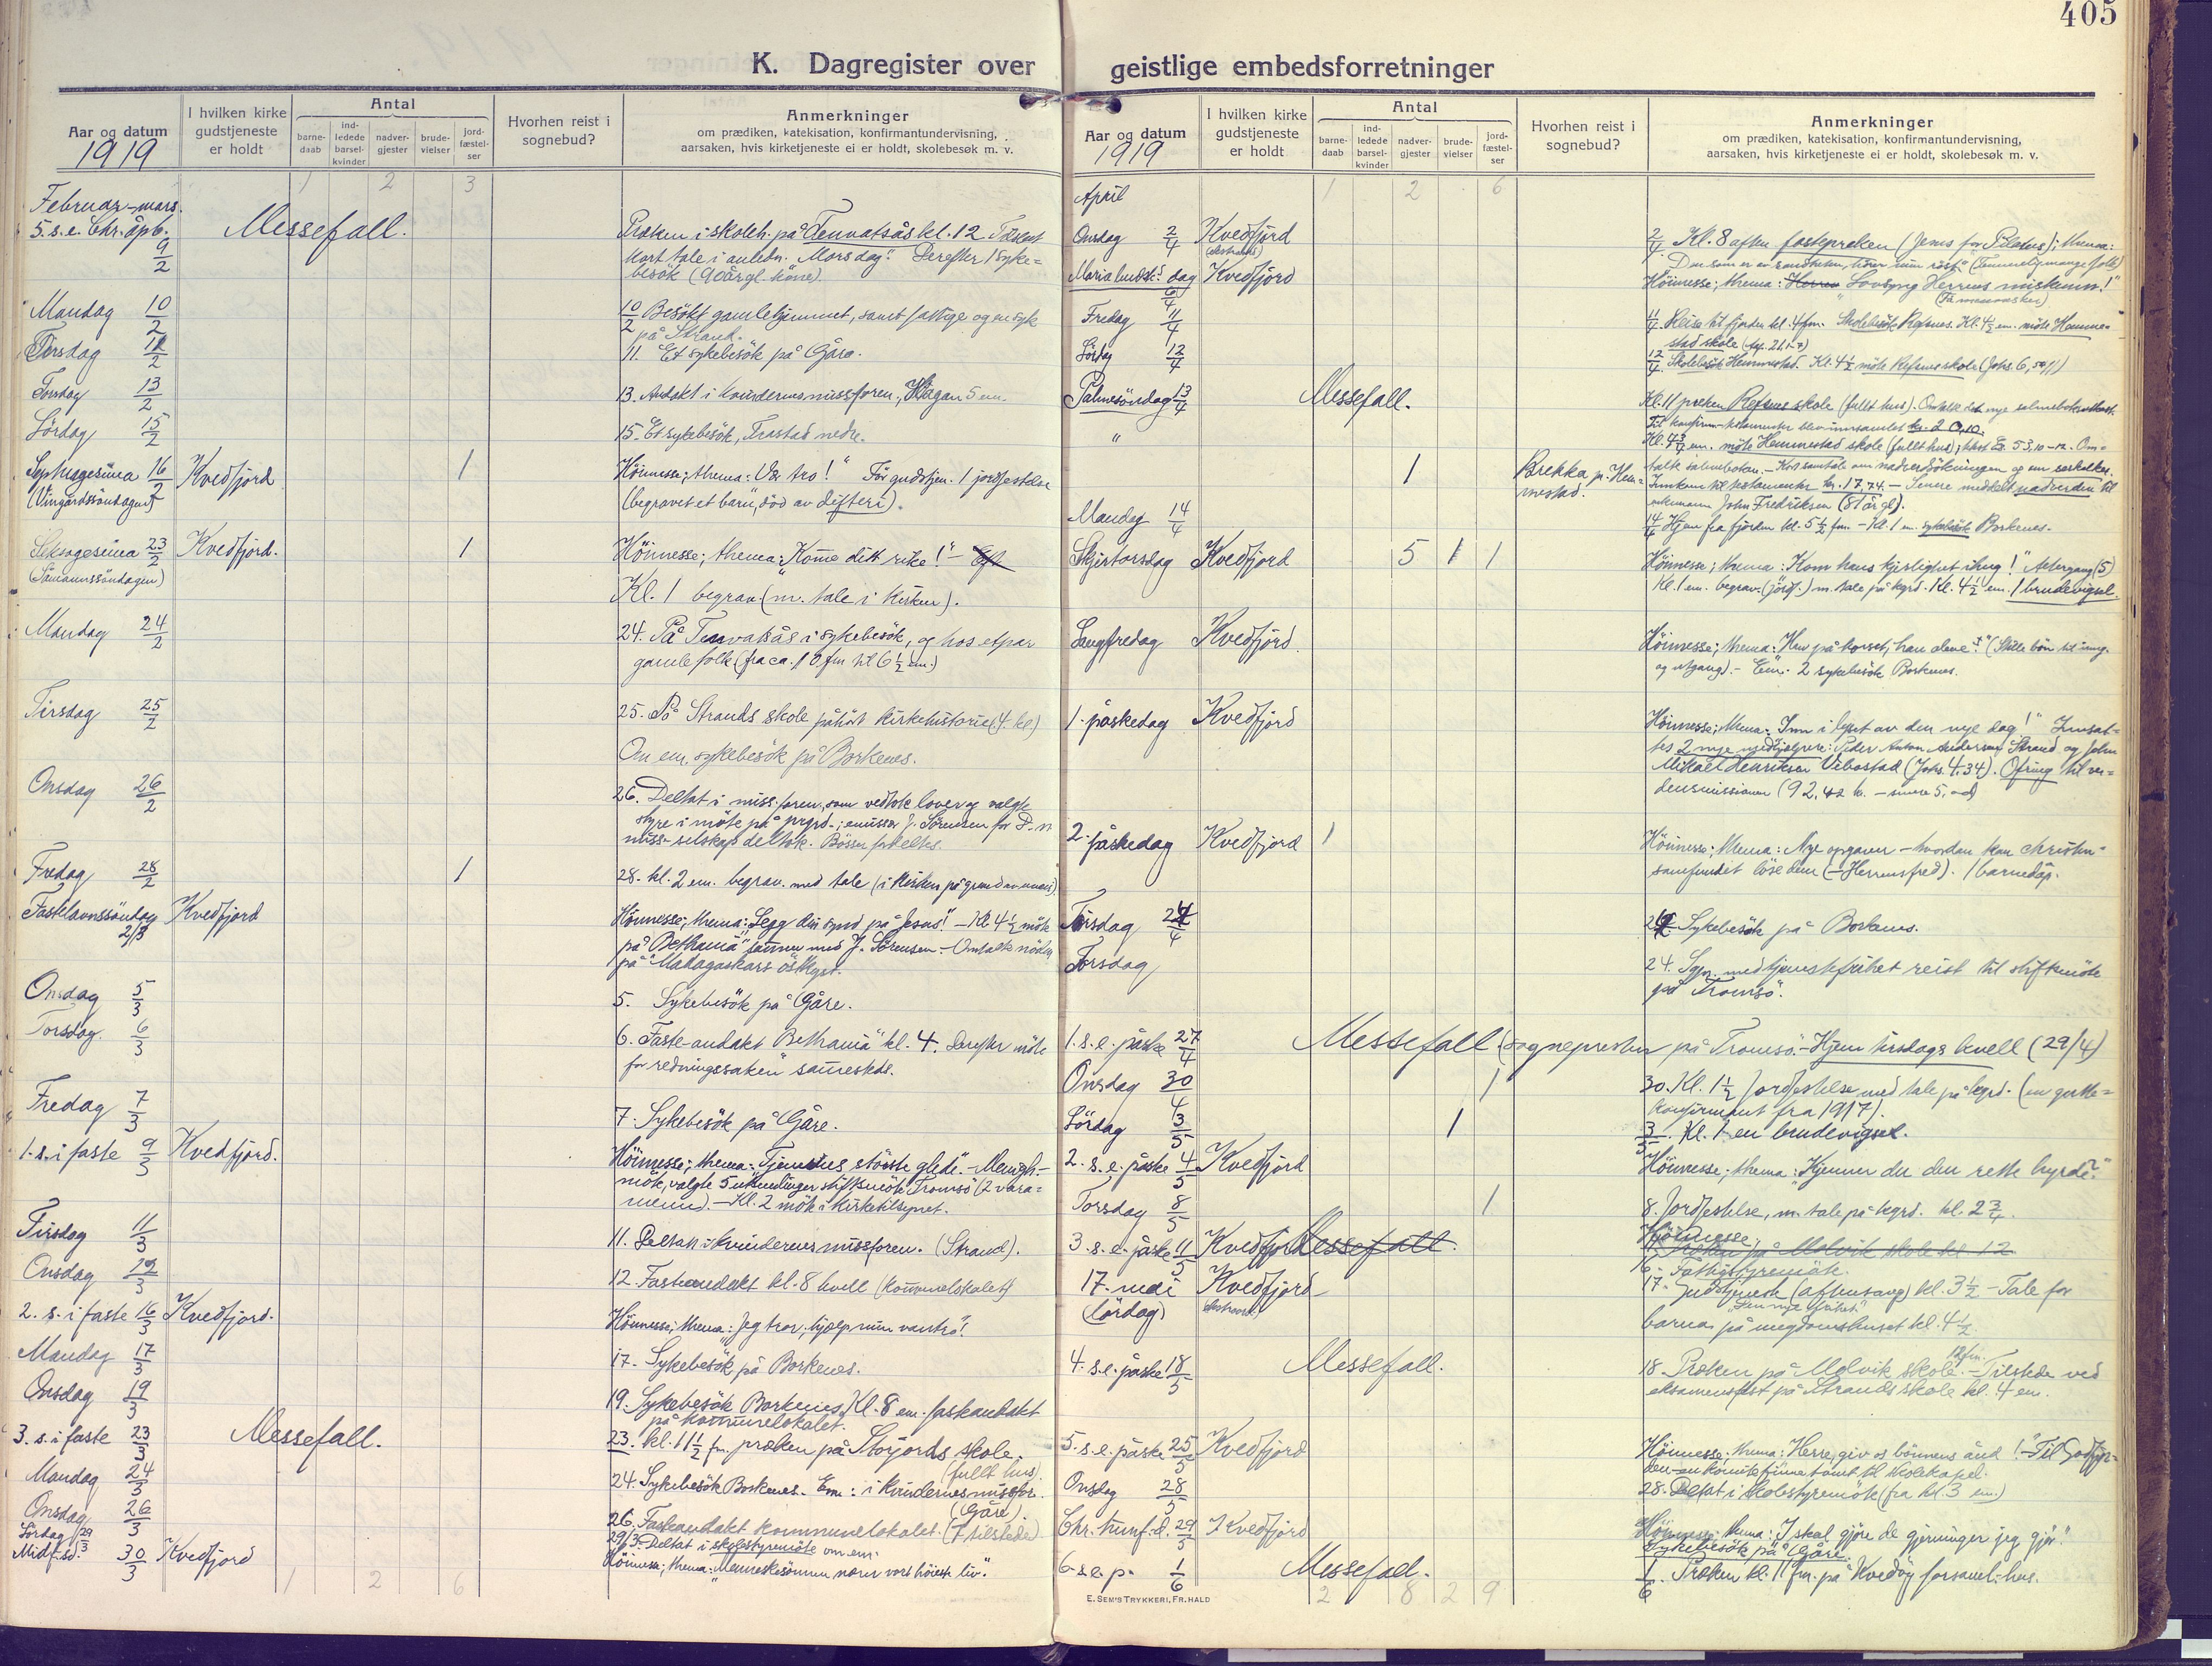 405
K. Dagregister over geistlige embedsforretninger
Aar og datum
1919
I hvilken kirke gudstjeneste er holdt
Antal
barne-daab
ind-ledede barsel-kvinder
nadver-gjester
brude-vielser
jord-fæstel-ser
Hvorhen reist i sognebud?
Anmerkninger
om prædiken, katekisation, konfirmantundervisning,
aarsaken, hvis kirketjeneste ei er holdt, skolebesøk m. v.
1 2 3
Februar-mars.
5. s. e. Chr. åpb. 9/2 Messefall. Præken i skoleh. på Tenvatsås kl. 12
kort tale i anledn. "Morsdag". Derefter 1 syke=
besök (90årgl. kone).
Mandag 10/2 10/2 Besökt gamlehjemmet, samt fattige og en syk
på Strand.
Tirsdag 11/2 11. Et sykebesök på Gåre.
Torsdag 13/2 13. Andakt i kvindernes missforen., Hagan 5 em.
Lördag 15/2 15. Et sykebesök, Trastad nedre.
Septuagesima 16/2 Kvedfjord 1 Höimesse; thema: Vor tro!" För gudstjen. 1 jordfestelse
(Vingårdssöndagen) (begravet et barn, död av difteri).
Seksagesima 23/2 Kvedfjord. 1 Höimesse; thema: "Kome ditt rike!" -
(Såmannssöndagen)
Kl. 1 begrav. (m. tale i kirken).
Mandag 24/2 24. På Tenvatsås i sykebesök, og hos etpar
gamle folk (fra ca. 10 fm til 6 1/2 em.)
Tirsdag 25/2 25. På Strands skole påhört kirkehistorie (4. kl)
Om em. sykebesök på Borkenes.
Onsdag 26/2 26. Deltat i miss.foren, som vedtok lover og valgte
styre i möte på prgrd.; emissær J. Sörensen for D. n.
miss. selskap deltok. Bösser fordeltes.
Fredag 28/2 1 28. kl. 2 em. begrav. med tale (i kirken på grund av uveir).
Fastelavnssöndag 2/3 Kvedfjord Höimesse; thema: "Legg din synd på Jesus!" - Kl. 4 1/2 möte
på "Bethania" sammen med J. Sörensen. - Omtalt nöden
på Madagaskars östkyst.
Onsdag 5/3 5. Sykebesök på Gåre.
Torsdag. 6/3 6. Faste-andakt "Bethania" kl. 4. Derefter möte
for "redningssaken" sammesteds.
Fredag 7/3 7. Sykebesök på Gåre.
1. s. i faste 9/3 Kvedfjord. Höimesse; thema: "Tjenestens störste glede". - Menigh.-
möte, valgte 5 utsendinger stiftsmöte Tromsö (2 vara=
menn). - Kl. 2 möte i kirketilsynet.
Tirsdag 11/3 11. Deltatt i kvindernes missforen. (Strand).
Onsdag 12/3 12. Fasteandakt kl. 8 kvell (kommunelokalet)
2. s. i faste 16/3 Kvedfjord. Höimesse; thema: "Jeg tror, hjælp min vantro".
Mandag 17/3 17. Sykebesök på Borkenes.
Onsdag 19/3 19. Sykebesök Borkenes, Kl. 8 em. fasteandakt
på kommunelokalet.
3. s. i faste 23/3 Messefall. 23. kl. 11 1/2 fm. præken på Storjords skole.
(fullt hus).
Mandag 24/3 24. Sykebesök Borkenes. Em: i kvindernes missfor.
(Gåre).
Onsdag 26/3 26. Fasteandakt kommunelokalet. (7 tilstede)
Lördag 29/3 29/3. Deltat i skolestyremöte om em.
Midf.sd. 30/3 Kvedfjord Höimesse; thema: "Menneskesönnen nærer vort höieste liv".
1 2 6
Aar og datum
1919
I hvilken kirke gudstjeneste er holdt
Antal
barne-daab
ind-ledede barsel-kvinder
nadver-gjester
brude-vielser
jord-fæstel-ser
Hvorhen reist i sognebud?
Anmerkninger
om prædiken, katekisation, konfirmantundervisning,
aarsaken, hvis kirketjeneste ei er holdt, skolebesøk m. v.
1 2 6
April
Onsdag 2/4 Kvedfjord 2/4 Kl. 8 aften fastepreken (Jesus for Pilatus); thema:
(ekstraord.) Den som er av sandheten, hörer min röst" (Temmelig mange folk)
Maria budsk. dag 6/4 Kvedfjord Höimesse; thema: "Lovsyng Herrens miskunn!"
(Få mennesker)
Fredag 11/4 11/4. Reise til fjorden kl. 4 fm. Skolebesök Refsnes. Kl. 4 1/2 em. möte Hemme=
stad skole
Lördag 12/4 12/4. Skolebesök Hemmestad. Kl. 4 1/2 möte Refsnes skole (Johs. 6,
Palmesöndag 13/4 Messefall. Kl. 11 preken Refsnes skole (fullt hus). Omtalt det nye salmebokutkast.
Til konfirm.-testamenter blev innsamlet kr. 20,10.
" Kl. 4 3/4 em. möte Hemmestad skole (fullt hus); tekst Es. 53,10-12. Om=
1 Brekka pr. Hem= talte salmeboken. - Kort samtale om nadversökningen og om særkalker.
mestad. Innkom til testamenter kr. 17,74. - Senere meddelt nadverden til
enkemann John Fredriksen (81 årgl).
Mandag 14/4 14/4 Hjem fra fjorden kl. 5 1/2 fm. - Kl. 1 em. sykebesök Borkenes.
Skjærtorsdag Kvedfjord 5 1 1 Höimesse; thema: "Kom hans kjerlighet ihug!" Altergang (5)
Kl. 1 em. begrav. (jordf.) m. tale på kgrd. Kl. 4 1/2 em. 1 brudevigsel.
Langfredag Kvedfjord. Höimesse; thema: "Han på korset, han alene!" (Stille bön til inng.
og utgang). - Em. 2 sykebesök Borkenes.
1. påskedag Kvedfjord Höimesse; thema: "Inn i lyset av den nye dag!" Innsat=
tes 2 nye medhjelpere: Peder Anton Andersen Strand og John
Mikael Henriksen Vebostad (Johs. 4,34). Ofring til ver=
densmissionen (92,42 kr. -
2. påskedag Kvedfjord 1 Höimesse; thema: Nye opgaver - hvordan kan christen-
samfundet löse dem (- Herrens fred). 1 barnedåp.
Tirsdag 22/4 22. Sykebesök på Borkenes.
Torsdag 24. Sgpr. med tjenestefrihet reist til stiftsmöte
på Tromsö.
1. s. e. påske 27/4 Messefall. (sognepresten på Tromsö. - Hjem tirsdags kvell (29/4)
Onsdag 30/4 1 30. Kl. 1 1/2 Jordfestelse med tale på kgrd. (en gutte=
konfirmant fra 1917).
Lördag 3/5 1 3/5. Kl. 1 en brudevigsel.
2. s. e. påske 4/5 Kvedfjord Höimesse; thema: "Kjenner du den rette hyrde?"
Torsdag 8/5 1 8. Jordfestelse, m. tale på kgrd. kl. 2 3/4.
3. s. e. påske 11/5 Kvedfjord Messefall. Höimesse
11. Præken på Molvik skole kl. 12
Fattigstyremöte.
17. mai Kvedfjord 17. Gudstjeneste (aftensang) kl. 3 1/2 - Tale for
(lördag) (ekstraord.) "Den nye frihet."
barna på ungdomshuset kl. 4 1/2.
4. s. e. påske 18/5 Messefall. 18. Præken på Molvik skole. - Tilstede ved
eksamensfest på Strands skole kl. 4 em.
5. s. e. påske 25/5 Kvedfjord Höimesse; thema: Herre, giv os bönnens ånd!" Til Godfjor=
den en komite finne tomt til skolekapel.
Onsdag 28/5 28. Deltat i skolestyremöte (fra kl. 3 em.)
Chr. himf. d. 29/5 Kvedfjord Höimesse; thema: "I skal gjöre de gjerninger jeg gjör".
Sykebesök på Gåre.
6. s. e. p. 1/6 Messefall. 1/6. Præken kl. 11 fm. på Kvedöy forsaml.hus.
2 8 2 9
E. SEM'S TRYKKERI, FR.HALD